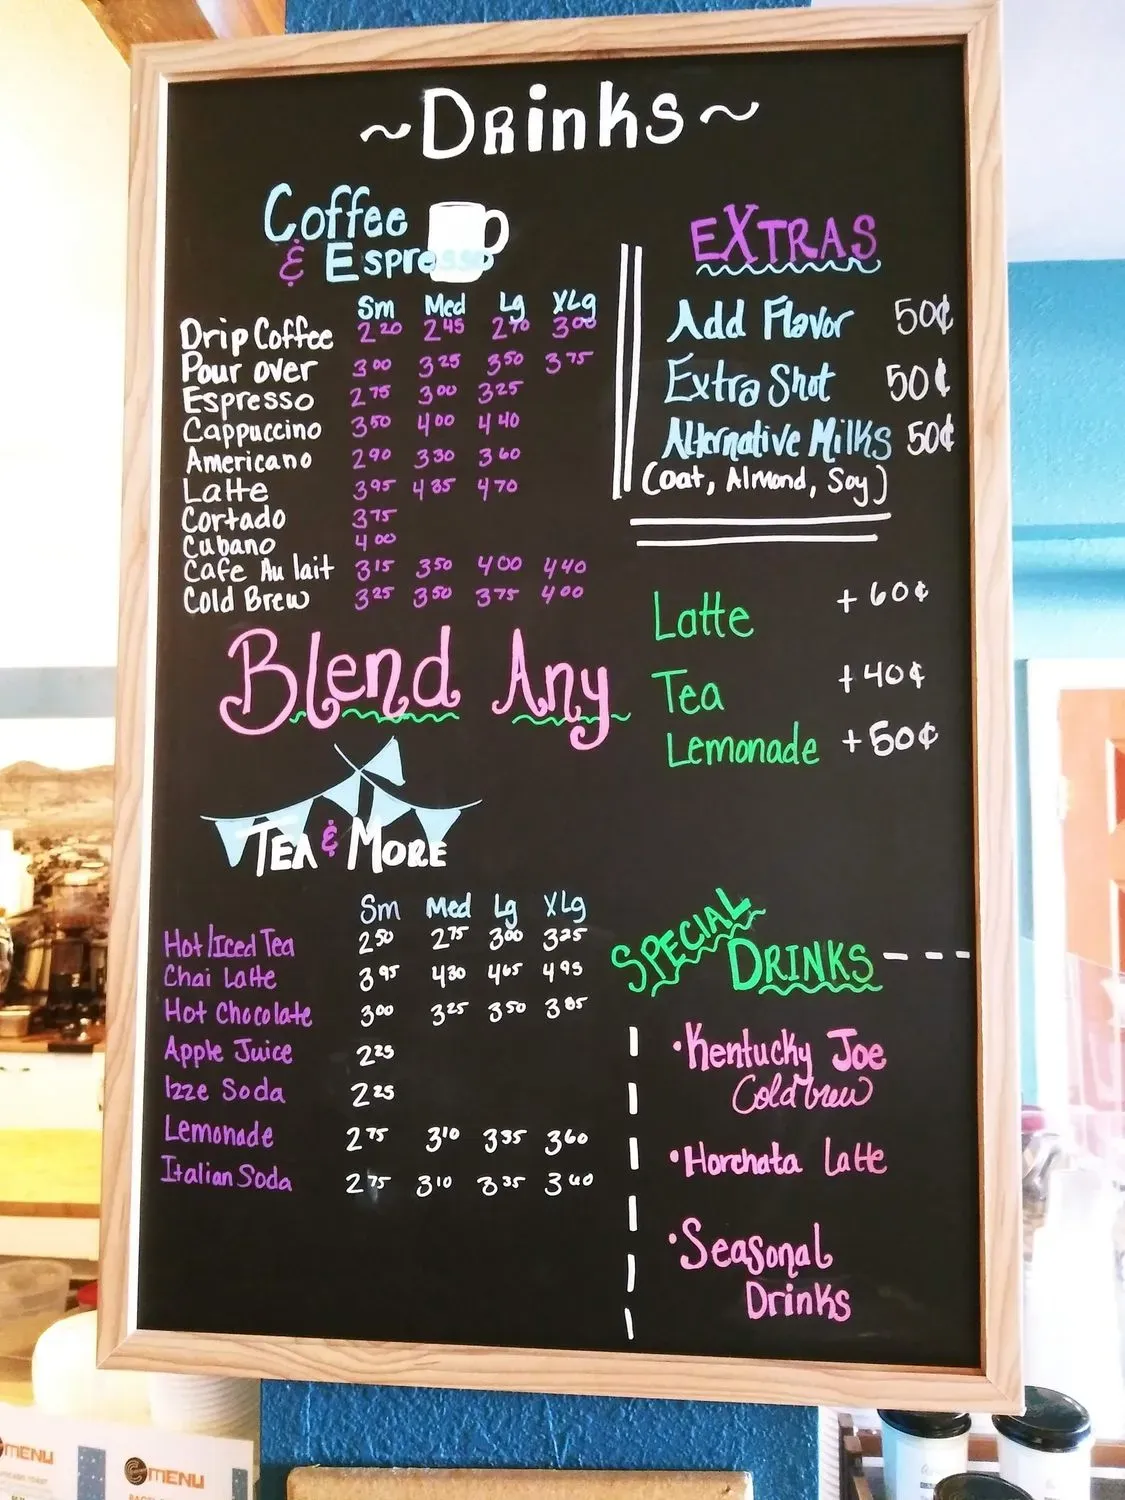 ~Drinks~
Coffee
& Espresso
Sm Med Lg XLg
Drip Coffee 2 20 2 45 2 70 3 00
Pour over 3 00 3 25 3 50 3 75
Espresso 2 75 3 00 3 25
Cappuccino 3 50 4 00 4 40
Americano 2 90 3 30 3 60
Latte 3 95 4 35 4 70
Cortado 3 75
Cubano 4 00
Cafe Au lait 3 15 3 50 4 00 4 40
Cold Brew 3 25 3 50 3 75 4 00
EXTRAS
Add Flavor 50¢
Extra Shot 50¢
Alternative Milks 50¢
(Oat, Almond, Soy)
Blend Any
Latte +60¢
Tea +40¢
Lemonade +50¢
TEA & MORE
Sm Med Lg XLg
Hot/Iced Tea 2 50 2 75 3 00 3 25
Chai Latte 3 95 4 30 4 65 4 95
Hot Chocolate 3 00 3 25 3 50 3 85
Apple Juice 2 25
Izze Soda 2 25
Lemonade 2 75 3 10 3 35 3 60
Italian Soda 2 75 3 10 3 35 3 60
SPECIAL
DRINKS
•Kentucky Joe
Cold brew
•Horchata Latte
•Seasonal
Drinks
MENU
MENU